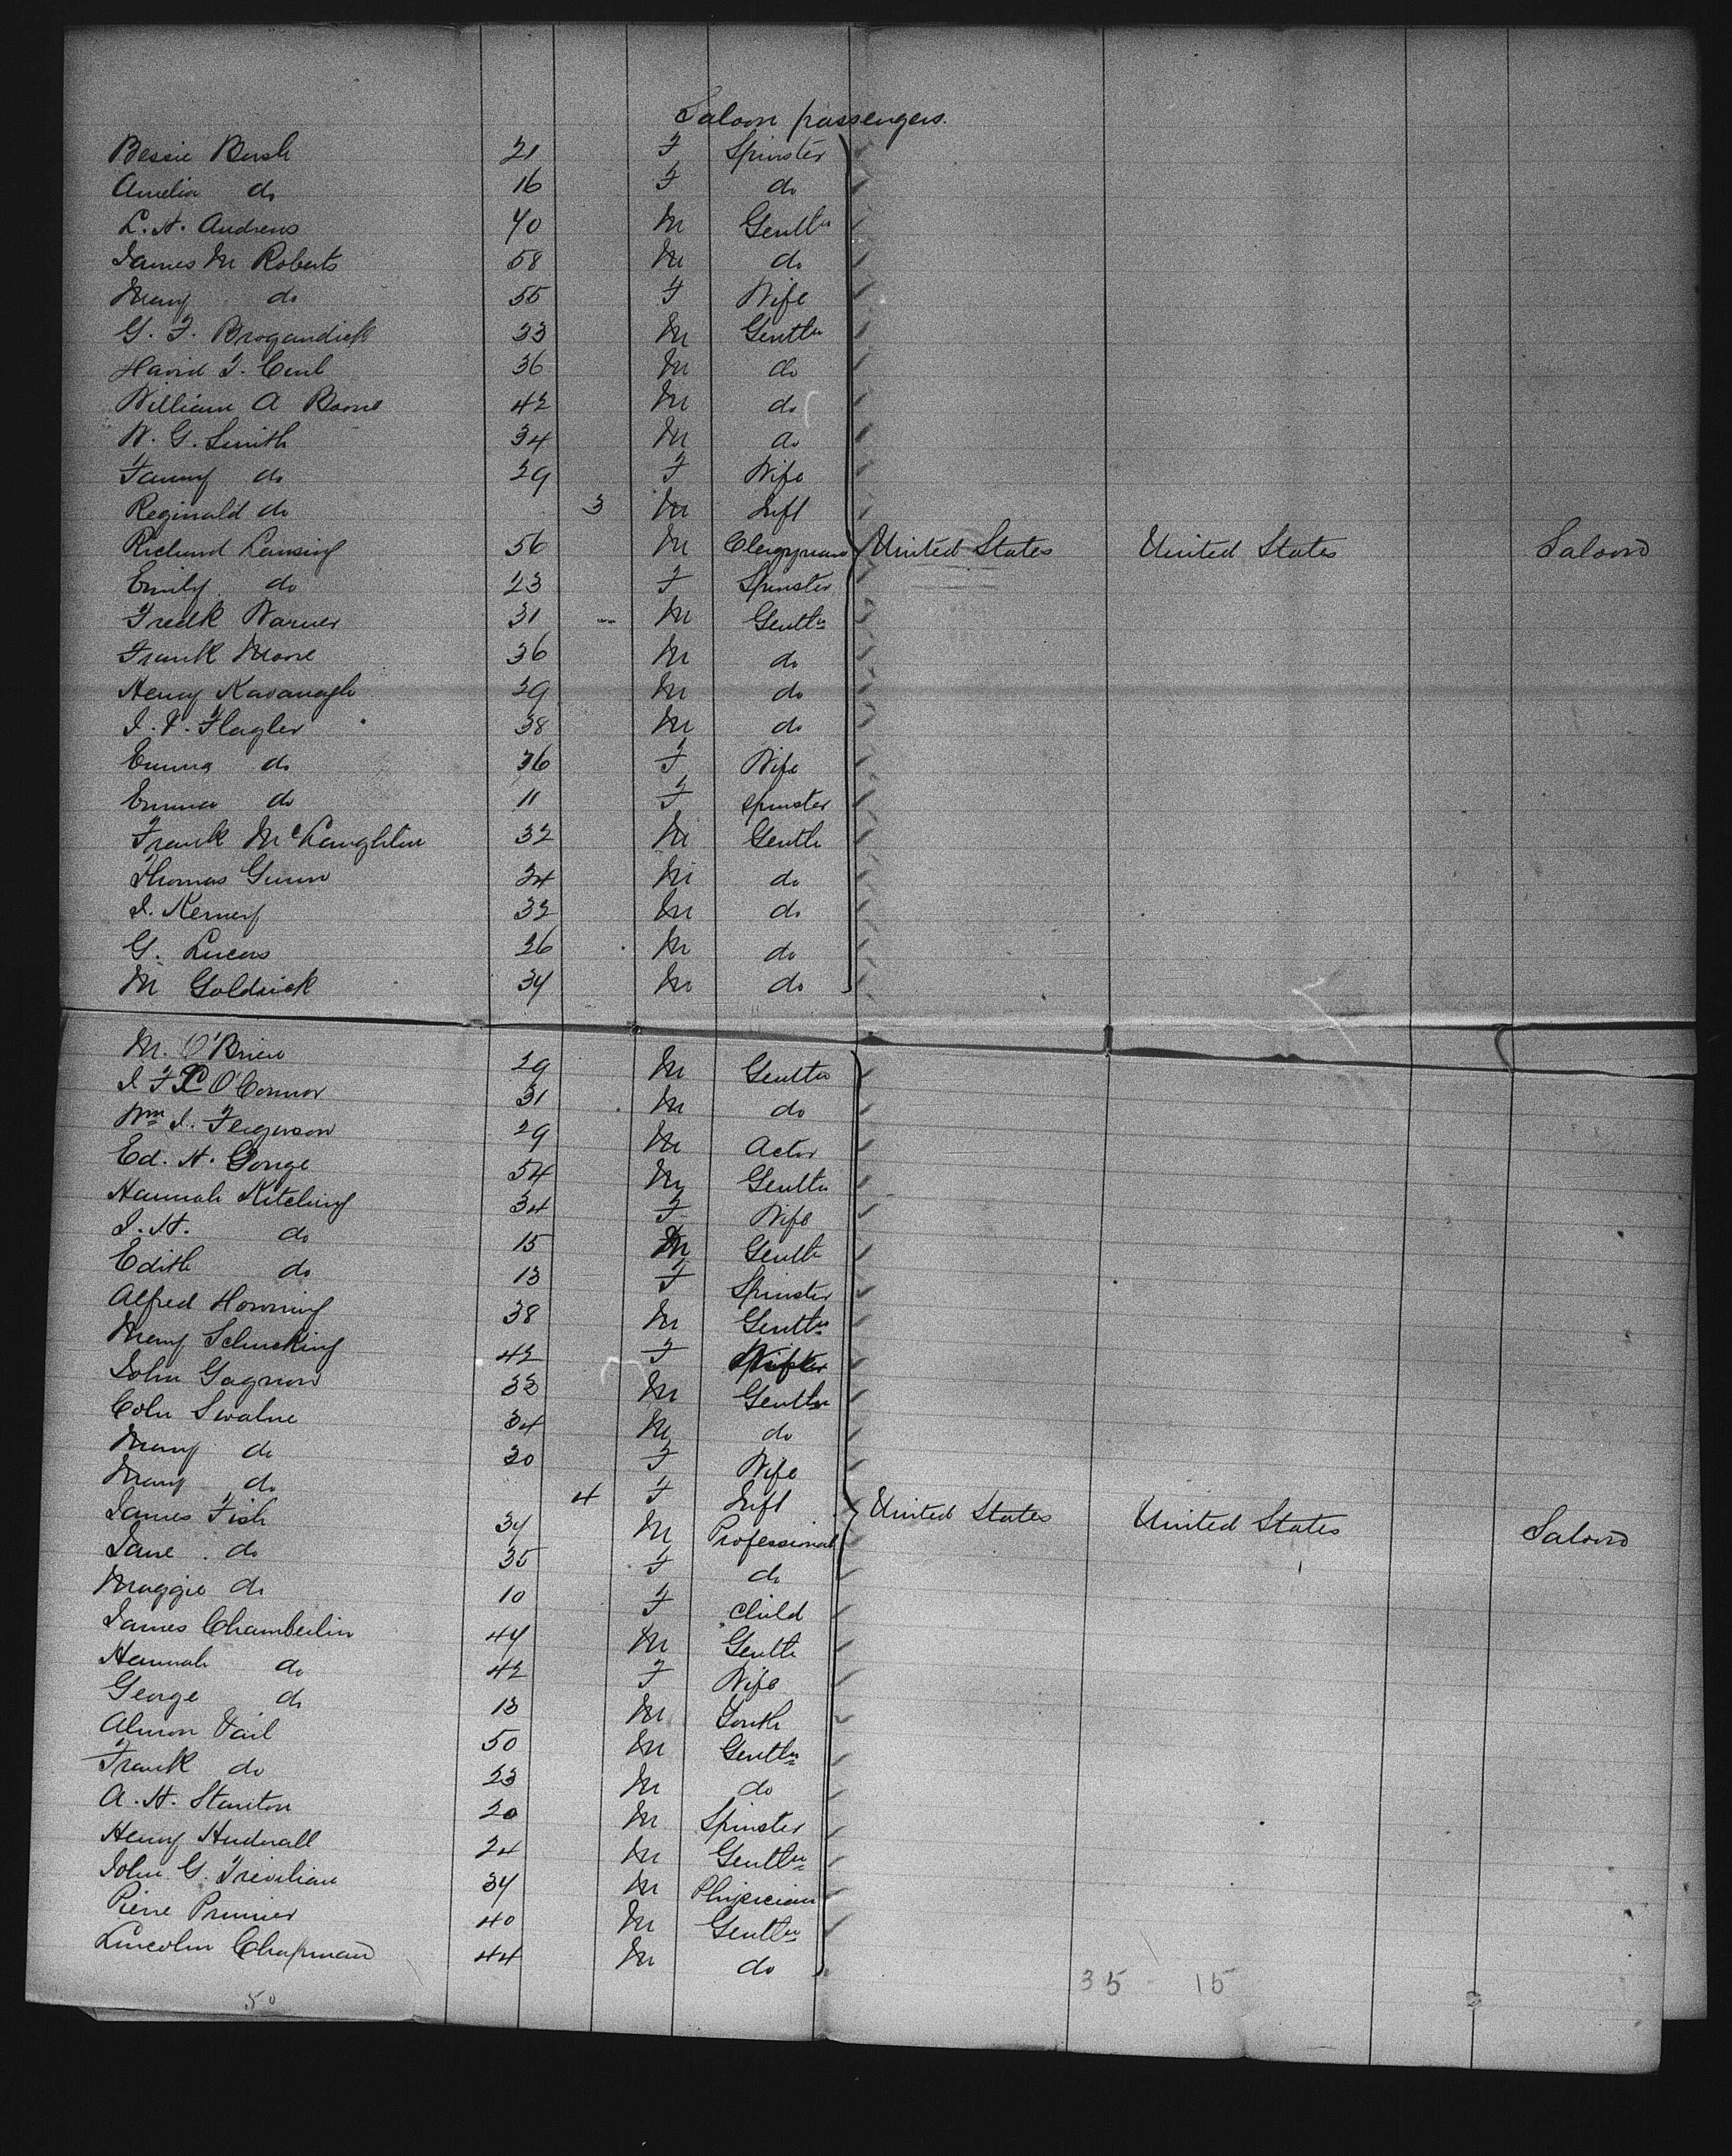 Saloon passengers.
Bessie Bush 21 F Spinster
Amelia do 16 F do
L. H. Andrews 40 M Gentln
James M Roberts 58 M do
Mary do 55 F Wife
G. F. Brogandick 33 M Gentln
David J. 36 M do
William A Boone 42 M do
W. G. Smith 34 M do
Fanny do 29 F Wife
Reginald do 3 M Inft
Richard Lansing 56 M Clergyman United States United States Saloon
Emily do 23 F Spinster
Fredk Warner 31 M Gentln
Frank Moore 36 M do
Henry Kavanagh 29 M do
I. V. Flagler 38 M do
Emma do 36 F Wife
Emma do 11 F Spinster
Frank McLaughlin 32 M Gentln
Thomas Gunn 24 M do
J. Kerney 32 M do
G. Lucas 26 M do
M Goldrick 34 M do
M. O'Brien 29 M Gentln
J F X O'Connor 31 M do
Wm J. Ferguson 29 M Actor
Ed. H. Gouge 54 M Gentln
Hannah Kitching 34 F Wife
J. H. do 15 M Gentln
Edith do 13 F Spinster
Alfred Horning 38 M Gentln
Mary Schucking 42 F
John Gagnon 33 M Gentln
Colin Swalne 34 M do
Mary do 30 F Wife
Mary do 4 F Inft
James Fish 34 M Professional United States United States Saloon
Jane do 35 F do
Maggie do 10 F Child
James Chamberlin 44 M Gentln
Hannah do 42 F Wife
George do 13 M Youth
Almon Vail 50 M Gentln
Frank do 23 M do
A. H. Stanton 20 M Spinster
Henry Hudnall 24 M Gentln
John G. Trevilian 34 M Physician
Pierre Prunier 40 M Gentln
Lincoln Chapman 44 M do
50 35 15